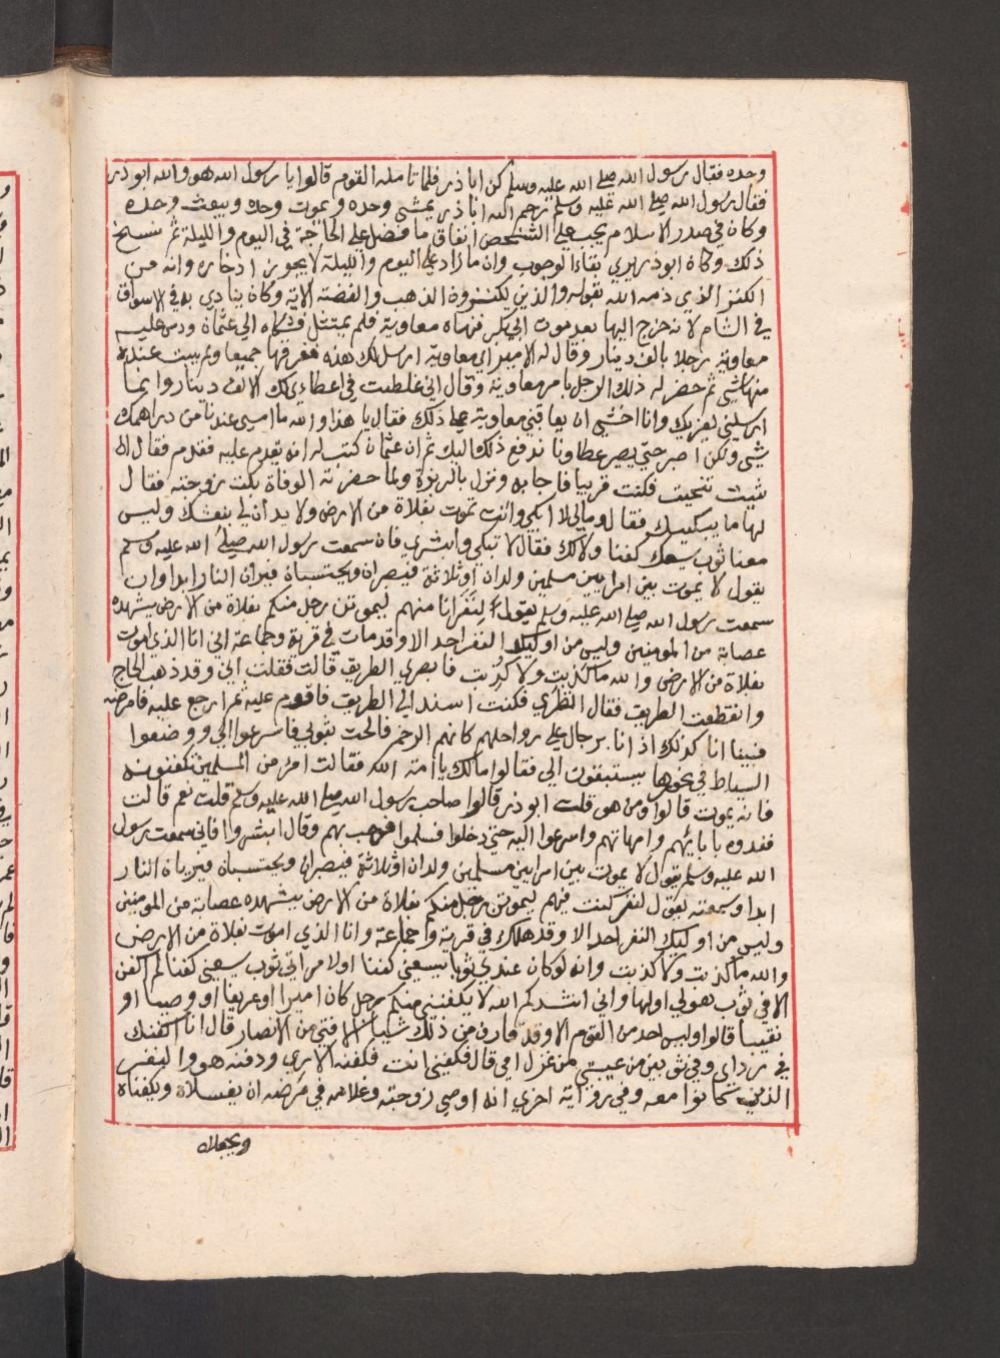 وحده فقال رسول الله صلى الله عليه وسلم كن ابا ذر فلما تامله القوم قالوا يا رسول الله هو والله ابو ذر
فقال رسول الله صلى الله عليه وسلم رحم الله ابا ذر يمشي وحده ويموت وحده ويبعث وحده
وكان في صدر الاسلام يجب على الشخص انفاق ما فضل على الحاجة في اليوم والليلة ثم نسخ
ذلك وكان ابو ذر يري بقاء الوجوب وان ما زاد على اليوم والليلة لا يجوز ادخاره وانه من
الكنز الذي ذمه الله بقوله والذين يكنزون الذهب والفضة الاية وكان ينادي به في الاسواق
في الشام لانه خرج اليها بعد موت ابي بكر فنهاه معاوية فلم يمتثل فشكاه الي عثمان ودس عليه
معاوية رجلا بالف دينار وقال له الامير اي معاوية ارسل لك هذه ففرقها جميعا ولم يبت عنده
منها شي ثم حضر له ذلك الرجل بامر معاوية وقال اني غلطت في اعطاي لك الالف دينار وانما
ارسلني لغيرك وانا اخشى ان يعاقبني معاوية على ذلك فقال يا هذا والله ما امسى عندنا من دراهمك
شي ولكن اصبر حتي يصير عطاونا ندفع ذلك اليك ثم ان عثمان كتب له انه يقدم عليه فقدم فقال له ان
شيت تنحيت فكنت قريبا فاجابه ونزل بالربذة ولما حضرته الوفاة بكت زوجته فقال
لها ما يبكيك فقالت ومالي لا ابكي وانت تموت بفلاة من الارض ولا يدان لي بنعشك وليس
معنا ثوب يسعك كفنا ولا لك فقال لا تبكي وابشري فاني سمعت رسول الله صلى الله عليه وسلم
يقول لا يموت بين امراين مسلمين ولدان او ثلاثة فيصبران ويحتسبان فيريان النار ابدا واني
سمعت رسول الله صلى الله عليه وسلم يقول لنفر انا منهم ليموتن رجل منكم بفلاة من الارض يشهده
عصابة من المومنين وليس من اوليك النفر احد الا وقد مات في قرية وجماعة اني انا الذي اموت
بفلاة من الارض والله ما كذبت ولا كذبت فابصري الطريق قالت فقلت اني وقد ذهب الحاج
وانقطعت الطريق فقال انظري فكنت اسند الي الطريق فاقوم عليه ثم ارجع عليه فامرضه
فبينا انا كذلك اذ انا برجال على رواحلهم كانهم الرخم فالحت بثوبي فاسرعوا الي ووضعوا
السياط في نحورها يستبقون الي فقالوا مالك يا امة الله فقالت امرؤ من المسلمين تكفنونه
فانه يموت قالوا ومن هو قلت ابو ذر قالوا صاحب رسول الله صلى الله عليه وسلم قلت نعم قالت
ففدوه بابائهم وامهاتهم واسرعوا اليه حتي دخلوا فسلموا فرحب بهم وقال ابشروا فاني سمعت رسول
الله عليه وسلم يقول لا يموت بين امراين مسلمين ولدان او ثلاثة فيصبران ويحتسبان فيريان النار
ابدا وسمعته يقول لنفر كنت فيهم ليموتن رجل منكم بفلاة من الارض يشهده عصابة من المومنين
وليس من اوليك النفر احد الا وقد هلك في قرية وجماعة وانا الذي اموت بفلاة من الارض
والله ما كذبت ولا كذبت وانه لو كان عندي ثوبا يسعني كفنا او لامراتي ثوب يسعني كفنا لم اكفن
الا في ثوب هو لي او لها واني انشدكم الله لا يكفنني منكم رجل كان اميرا او عريفا او وصيا او
نقيبا قالوا وليس احد من القوم الا وقد قارف من ذلك شيا الا فتي من الانصار قال انا اكفنك
في رداي وفي ثوبين من عيبتي من غزل امي قال فكفني انت فكفنه الانصاري ودفنه هو والنفر
الذين كانوا معه وفي رواية اخري انه اوصي زوجته وغلامه في مرضه ان يغسلاه ويكفناه
ويجعلاه